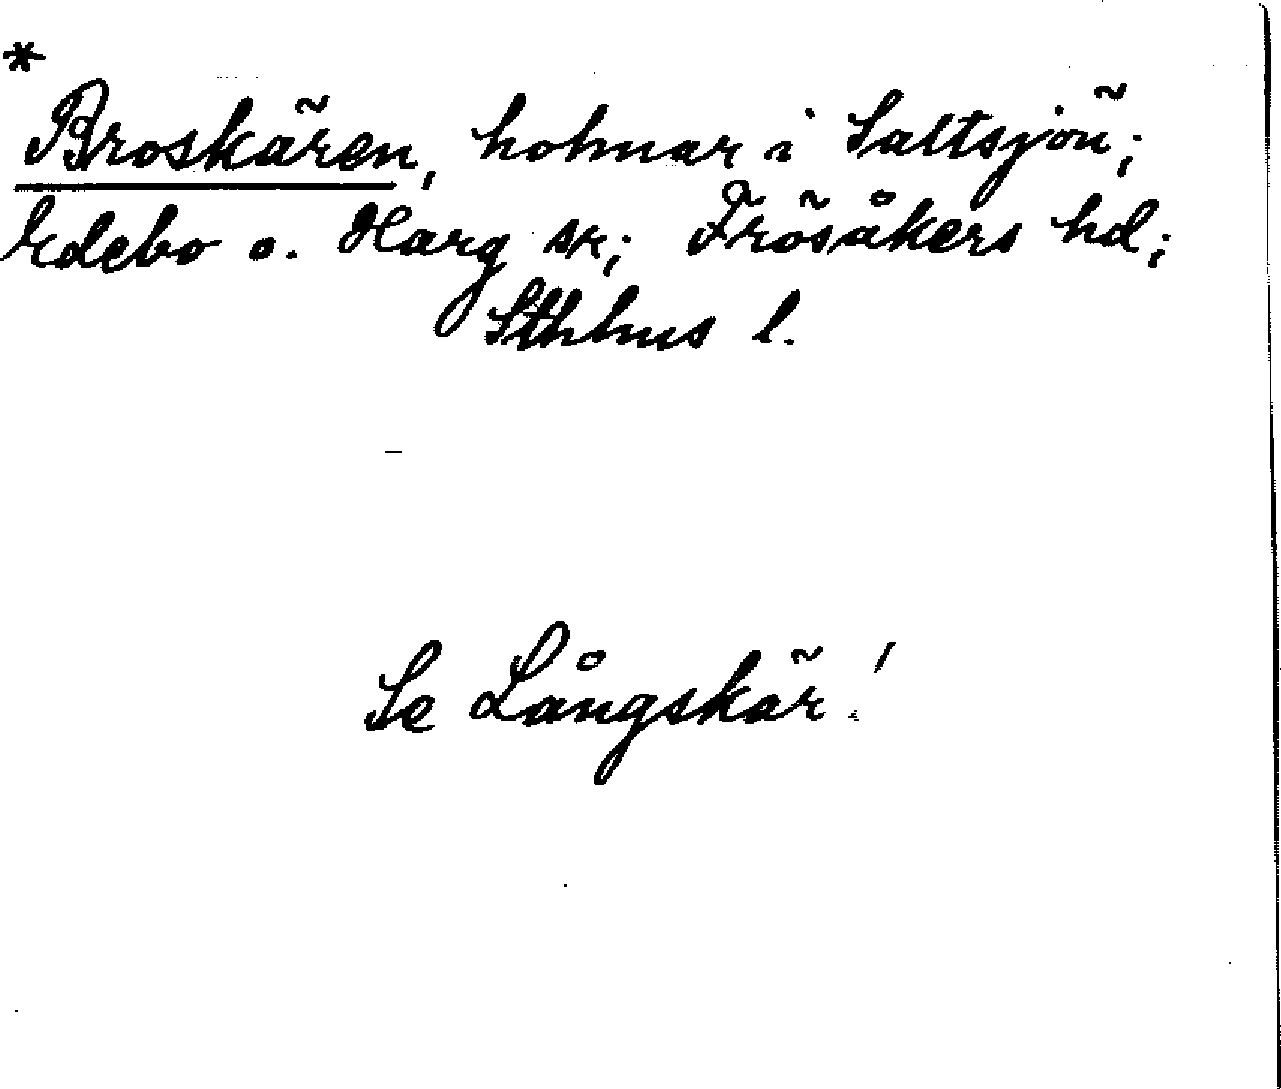 *
Broskären, holmar i Saltsjön;
Edebo o. Harg sn; Frösåkers hd;
Sthlms l.
Se Långskär!